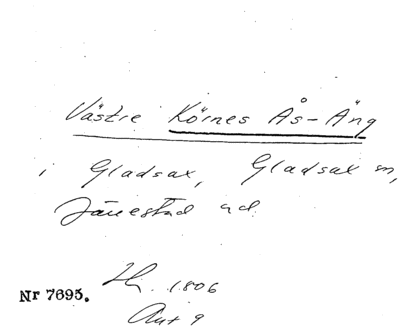 Västre Körnes Ås-Äng
i Gladsax, Gladsax sn,
Järrestad hd.
Nr 7695.
1806
Akt 9